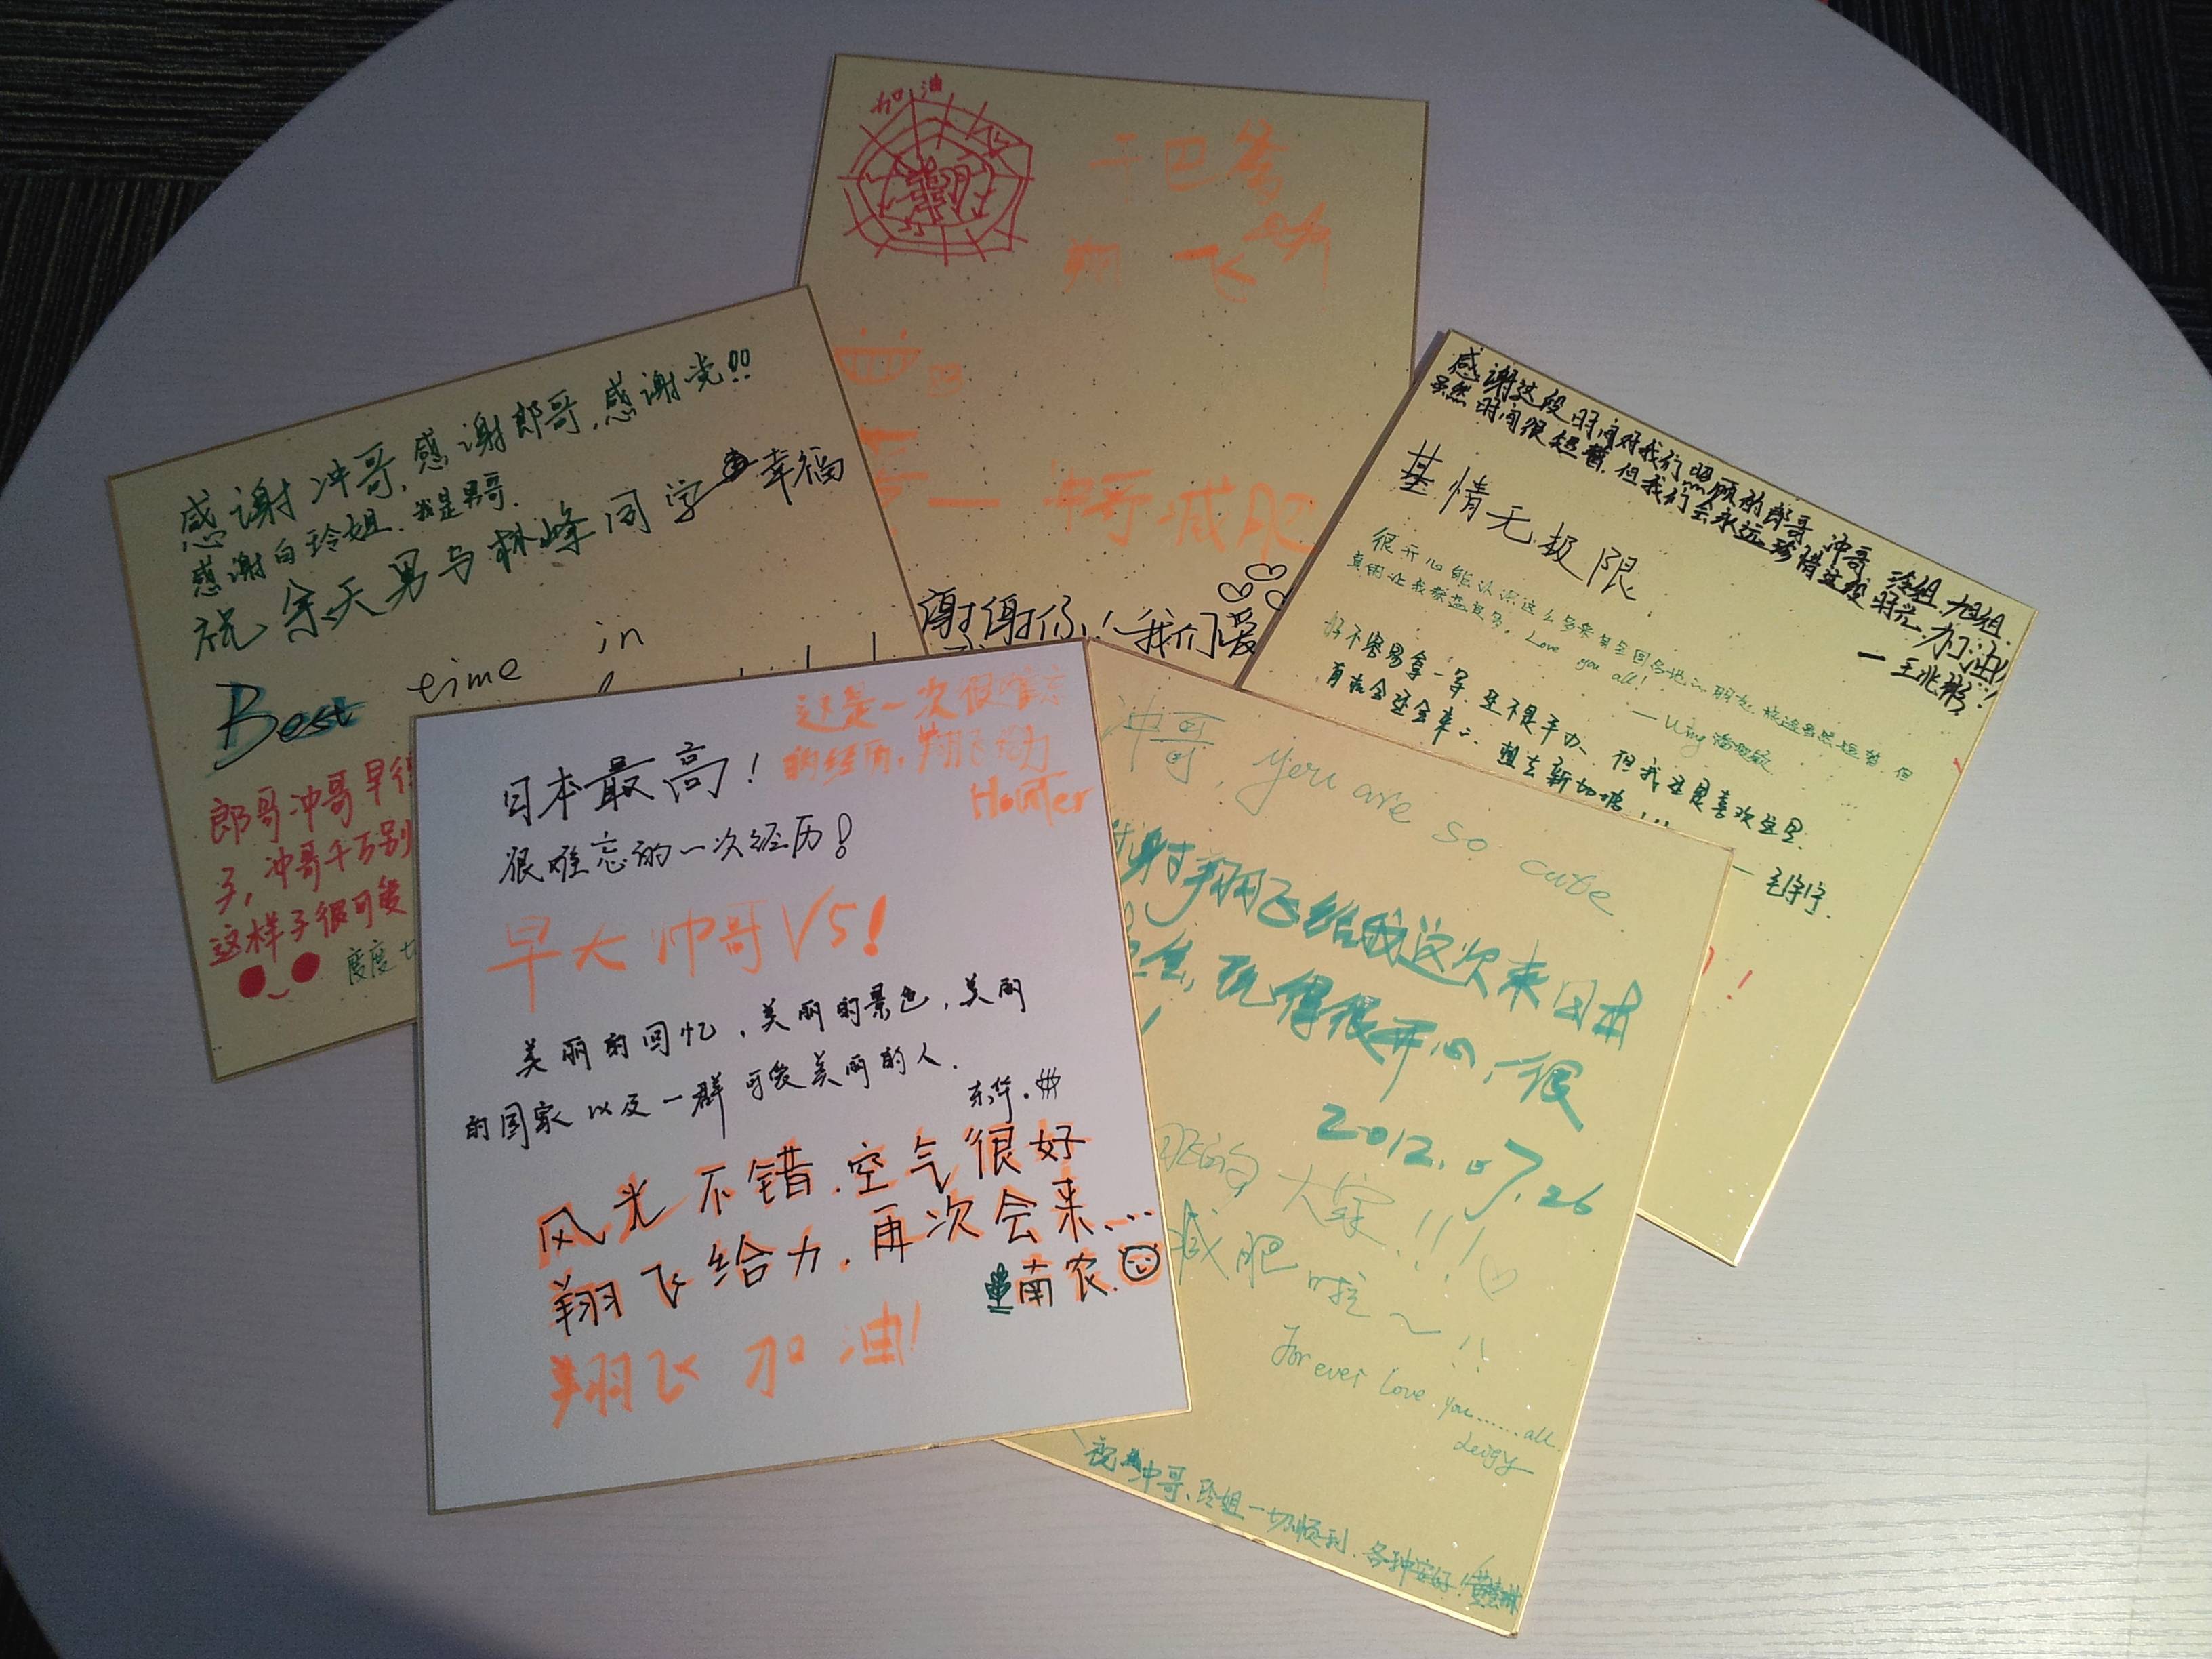 加油
翔
干巴爹
翔飞
一冲哥减肥
谢谢你！我们爱
感谢冲哥,感谢郎哥,感谢党!!
感谢白玲姐.我是男哥.
祝余天男与林峰同学幸福
Best time in
郎哥冲哥早
子,冲哥千万别
这样子很可爱
度度
感谢这段时间对我们照顾的郎哥,冲哥
虽然时间很短暂,但我们会永远珍惜这段时光,加油!
一王兆彬
基情无极限
很开心能认识这么多来自全国各地的朋友,旅途虽然短暂,但
真的让我获益良多。Love you all!
好不容易拿一等,还不是手办、但我还是喜欢这里.
有机会还会来的.想去新加坡!!!
日本最高!
很难忘的一次经历!
这是一次很难忘
的经历,翔飞给力
Hunter
早大冲哥V5!
美丽的回忆,美丽的景色,美丽
的国家以及一群可爱美丽的人.
东华.
风光不错.空气很好
翔飞给力,再次会来...
南农.
翔飞加油!
冲哥, you are so cute
谢翔飞给我这次来日本
玩得很开心,很
2012.07.26
的大家!!!
减肥啦~!!
Forever love you......all.
祝冲哥、玲姐一切顺利.各种安好!